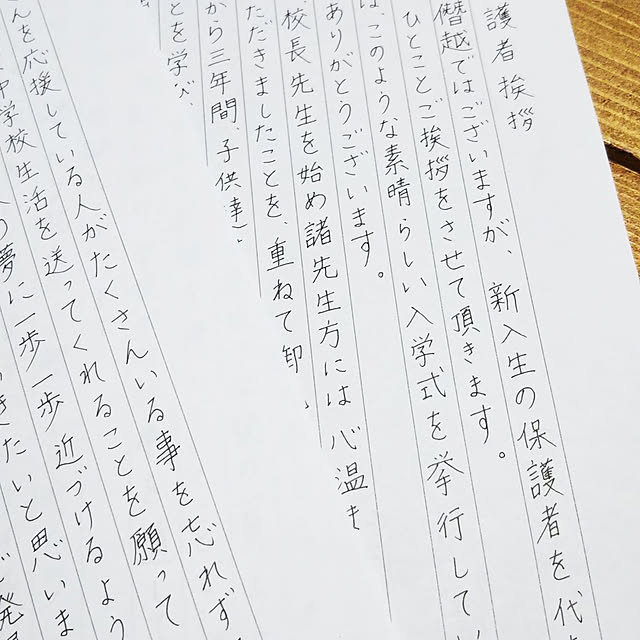 護者挨拶
僭越ではございますが、新入生の保護者を代
ひとことご挨拶をさせて頂きます。
は、このような素晴らしい入学式を挙行して
ありがとうございます。
校長先生を始め諸先生方には心温
ただきましたことを、重ねて
から三年間、子供
とを学び、
んを応援している人がたくさんいる事を忘れず
中学校生活を送ってくれることを願って
の夢に一歩一歩近づけるよう
きたいと思いま